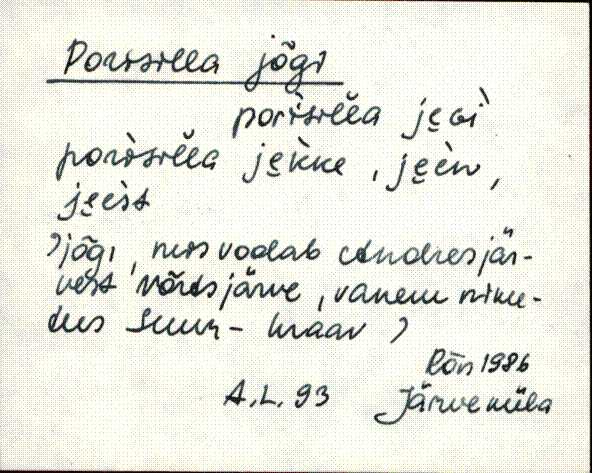 Porisilla jõgi
porìsìl̆la je̮Gì
porìsìl̆la je̮ìkke, je̮èn,
je̮èst
›jõgi, mis voolab Andresjär-
vest Võrtsjärve, vanem nime-
tus Suur-kraav›
Rõn 1986
A.L. 93 Järveküla